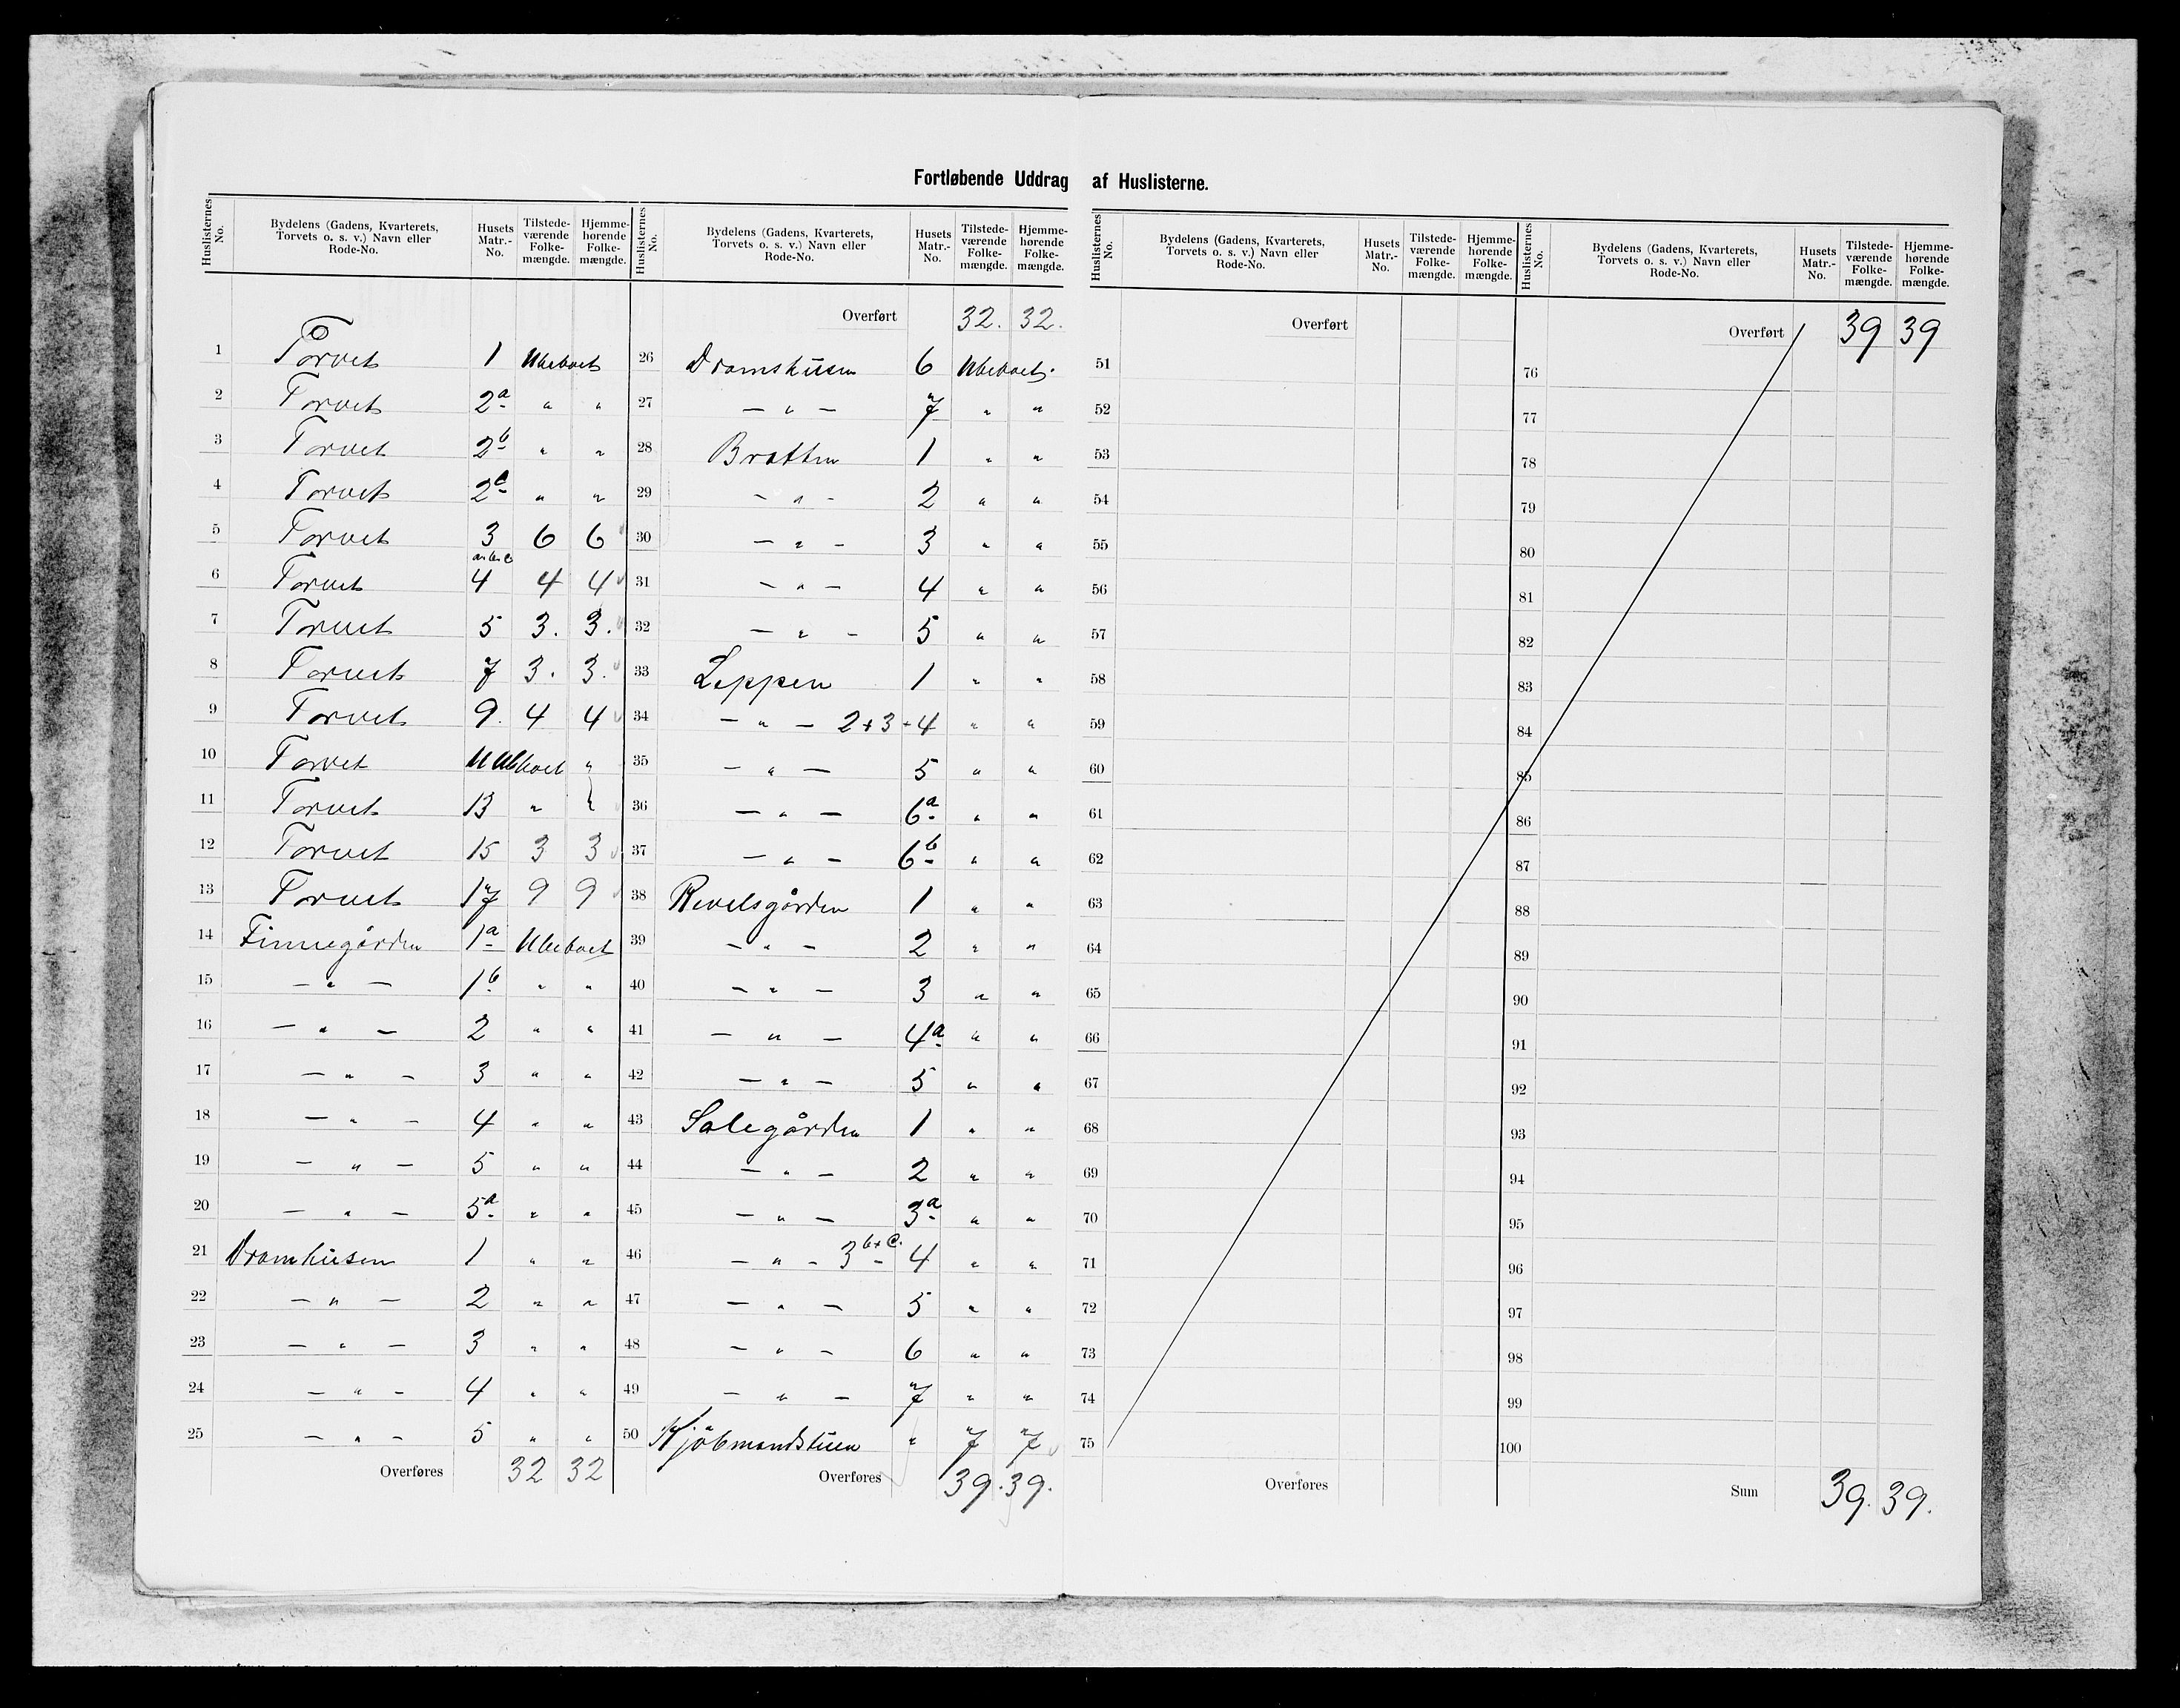 Fortløbende Uddrag af Huslisterne.
Huslisternes No. | Bydelens (Gadens, Kvarterets, Torvets o. s. v.) Navn eller Rode-No. | Husets Matr.-No. | Tilstede-værende Folke-mængde. | Hjemme-hørende Folke-mængde.
1 Torvet 1 Ubeboet
2 Torvet 2a " "
3 Torvet 2b " "
4 Torvet 2c " "
5 Torvet 3 6 6
6 Torvet 4 4 4
7 Torvet 5 3. 3.
8 Torvet 7 3. 3.
9 Torvet 9. 4 4
10 Torvet 11 Ubeboet "
11 Torvet 13 " "
12 Torvet 15 3 3
13 Torvet 17 9 9
14 Finnegården 1a Ubeboet
15 — " — 1b " "
16 — " — 2 " "
17 — " — 3 " "
18 — " — 4 " "
19 — " — 5 " "
20 — " — 5a " "
21 Dramhusen 1 " "
22 — " — 2 " "
23 — " — 3 " "
24 — " — 4 " "
25 — " — 5 " "
Overføres 32 32
Huslisternes No. | Bydelens (Gadens, Kvarterets, Torvets o. s. v.) Navn eller Rode-No. | Husets Matr.-No. | Tilstede-værende Folke-mængde. | Hjemme-hørende Folke-mængde.
Overført 32. 32.
26 Dramshusen 6 Ubeboet.
27 — " — 7 " "
28 Bratten 1 " "
29 — " — 2 " "
30 — " — 3 " "
31 — " — 4 " "
32 — " — 5 " "
33 Leppen 1 " "
34 — " — 2+3+4 " "
35 — " — 5 " "
36 — " — 6a " "
37 — " — 6b " "
38 Revelsgården 1 " "
39 — " — 2 " "
40 — " — 3 " "
41 — " — 4a " "
42 — " — 5 " "
43 Solegården 1 " "
44 — " — 2 " "
45 — " — 3a " "
46 — " — 3b+c. - 4 " "
47 — " — 5 " "
48 — " — 6 " "
49 — " — 7 " "
50 Kjöbmandstuen " 7 7
Overføres 39. 39.
Huslisternes No. | Bydelens (Gadens, Kvarterets, Torvets o. s. v.) Navn eller Rode-No. | Husets Matr.-No. | Tilstede-værende Folke-mængde. | Hjemme-hørende Folke-mængde.
Overført
51
52
53
54
55
56
57
58
59
60
61
62
63
64
65
66
67
68
69
70
71
72
73
74
75
Overføres
Huslisternes No. | Bydelens (Gadens, Kvarterets, Torvets o. s. v.) Navn eller Rode-No. | Husets Matr.-No. | Tilstede-værende Folke-mængde. | Hjemme-hørende Folke-mængde.
Overført 39 39
76
77
78
79
80
81
82
83
84
85
86
87
88
89
90
91
92
93
94
95
96
97
98
99
100
Sum 39. 39.